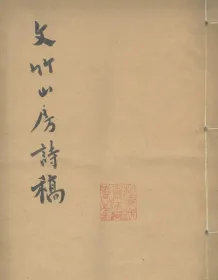 文竹山房詩稿